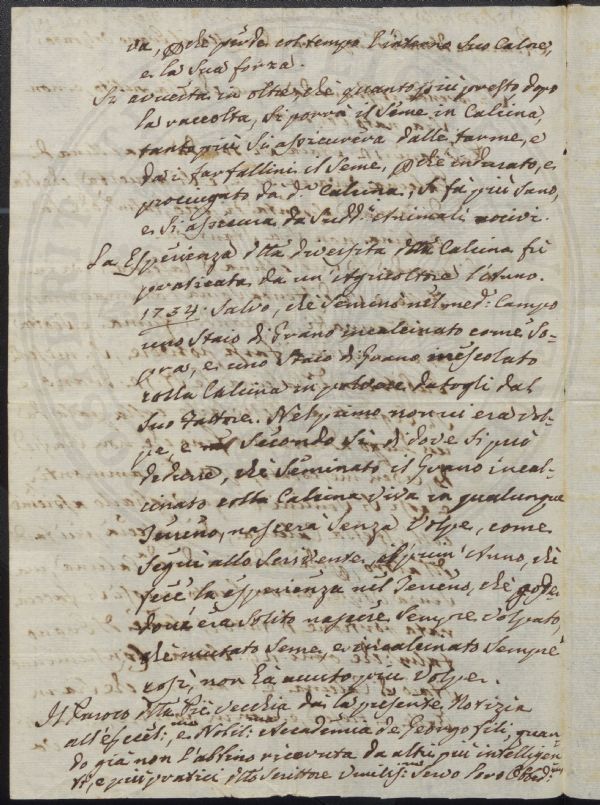 va, pchè perde col tempo l'interno suo Calore,
e la sua forza.
Si avverta in oltre, chè quanto più presto dopo
la raccolta, si porrà il Seme in Calcina,
tanto più si assicurerà dalle tarme, e
dai farfallini il Seme, pchè indurato, e
prosciugato da d.a Calcina, si fà più sano,
e si assicura da sudd.i Animali nocivi.
La Esperienza dlla diversità dlla Calcina fù
praticata da un' Agricoltore l'Anno
1734. Salvo, chè Seminò nel med.o Campo
uno Staio di Grano incalcinato come so=
pra, e uno Staio di Grano mescolato
colla Calcina in polvere datogli dal
suo Fattore. Nel primo non vi era Vol=
pe, e nel Secondo Si, di dove si può
dedurre, chè Seminato il Grano incal=
cinato colla Calcina Viva in qualunque
Terreno, nascerà senza Volpe, come
seguì allo Scrivente il prim' Anno, chè
fece la esperienza nel Terreno, chè gode,
dove era solito nascere sempre Volpato,
chè mutato Seme, e incalcinato sempre
così, non hà avuto più Volpe.
Il Paroco dlla Piè vecchia dà la presente Notizia
all'Eccell.ma, e Nobil.ma Accademia de Georgofili, quan=
do già non l'abbino ricevuta da altri più intelligen=
ti, e più pratici dllo Scrittore Umiliss.mo Servo loro Obbed.mo